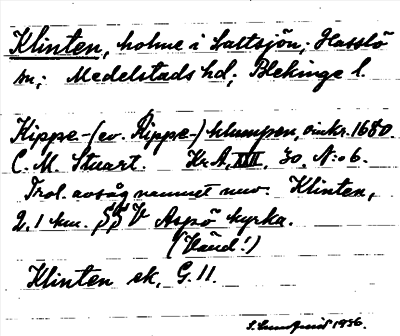 Klinten, holme i Saltsjön; Hasslö
sn; Medelstads hd; Blekinge l.
Kippe-(ev. Rippe-) klumpen, omkr. 1680.
C. M. Stuart. Kr.A, XIII, 30, N:o 6.
Trol. avsåg namnet nuv. Klinten,
2,1 km. SSV Aspö kyrka.
(Känd!)
Klinten ek, G. 11.
1936.